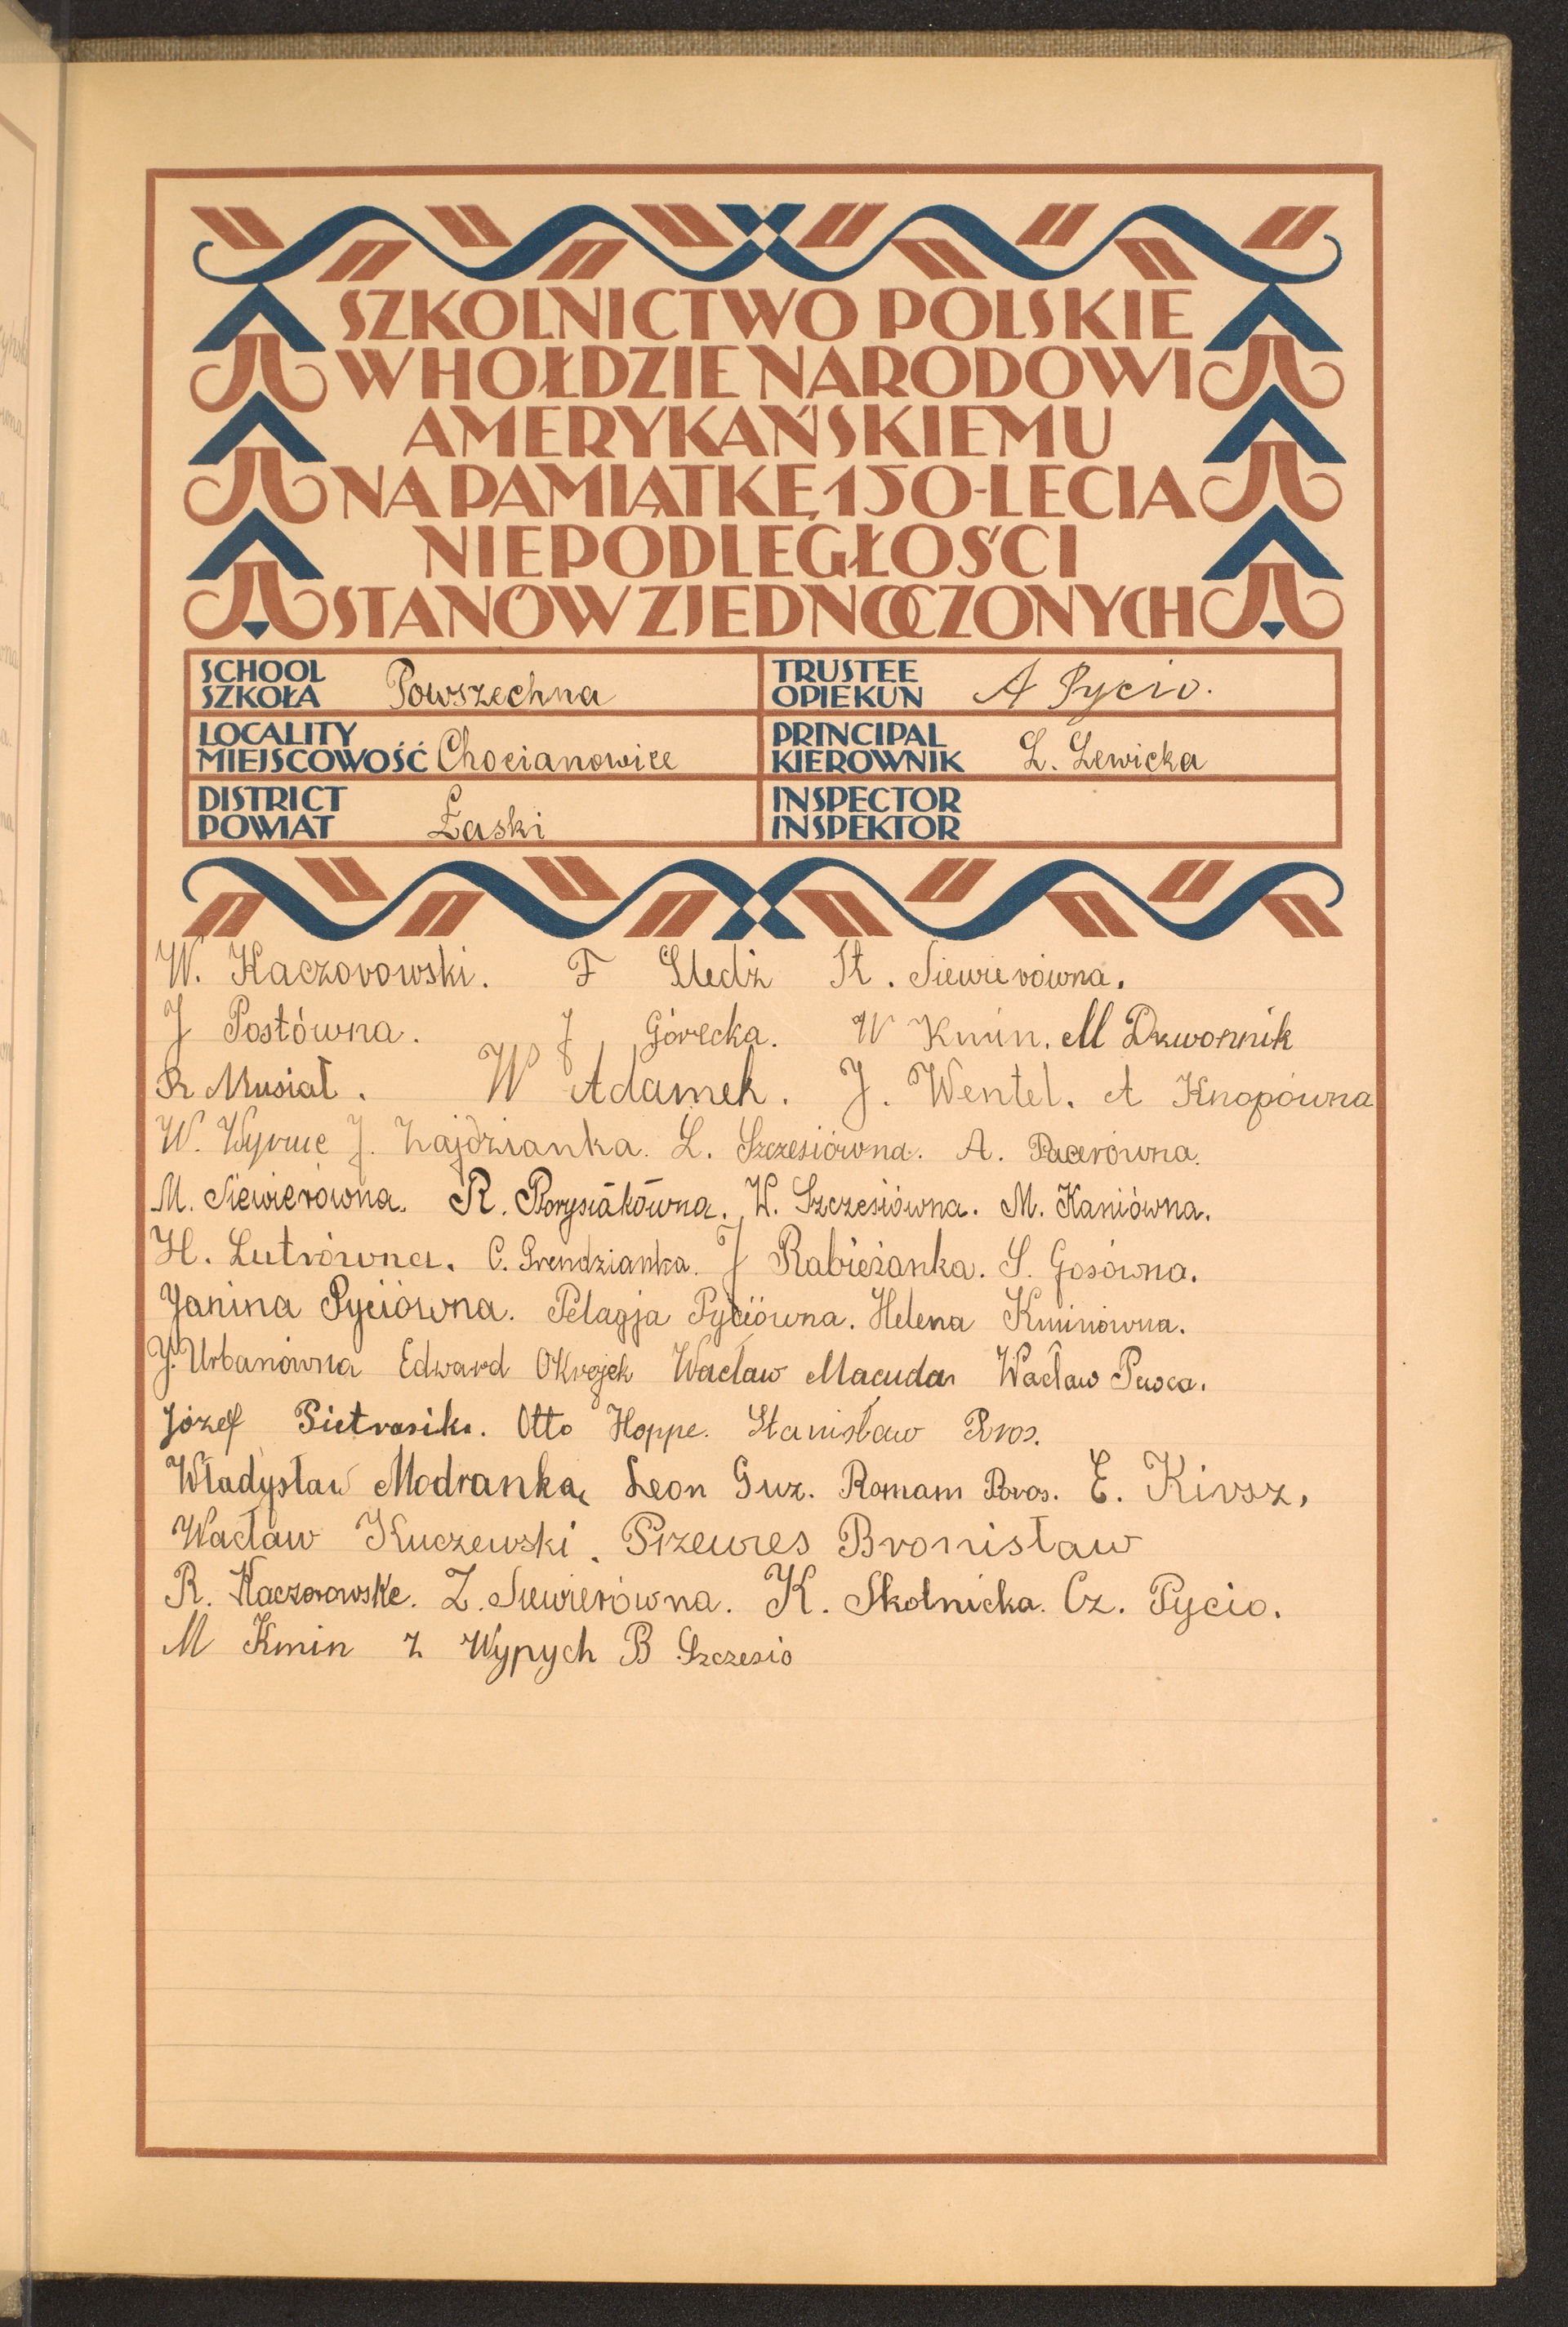 SZKOLNICTWO POLSKIE
W HOŁDZIE NARODOWI
AMERYKAŃSKIEMU
NA PAMIĄTKĘ 150-LECIA
NIEPODLEGŁOŚCI
STANÓW ZJEDNOCZONYCH
SCHOOL
SZKOŁA Powszechna
TRUSTEE
OPIEKUN A Pycio.
LOCALITY
MIEJSCOWOŚĆ Chocianowice
PRINCIPAL
KIEROWNIK L. Lewicka
DISTRICT
POWIAT Łaski
INSPECTOR
INSPEKTOR
W. Kaczorowski. F Śledź St. Siewierówna.
J Postówna. J Górecka. W Kmin. M Dzwonnik
R Musiał. W Adamek. J. Wentel. A Knopówna
W. J. Zajdzianka. L. Szczesiówna. A. Pacerówna.
M. Siewierówna. R. Borysiakówna. W. Szczesiówna. M. Kaniówna.
H. Lutrówna. C. Grendzianka. J Rabieżanka. S. Gosówna.
Janina Pyciówna. Pelagja Pyciówna. Helena Kminówna.
J. Urbanówna Edward Okrojek Wacław Macuda Wacław
Józef Pietrasik. Otto Hoppe. Stanisław Pros.
Władysław Modranka, Leon Guz. Romam Pros. E. Kirsz,
Wacław Kuczewski. Bronisław
R. Kaczorowske. Z. Siewierówna. K. Skolnicka. Cz. Pycio.
M Kmin Z Wypych B Szczesio